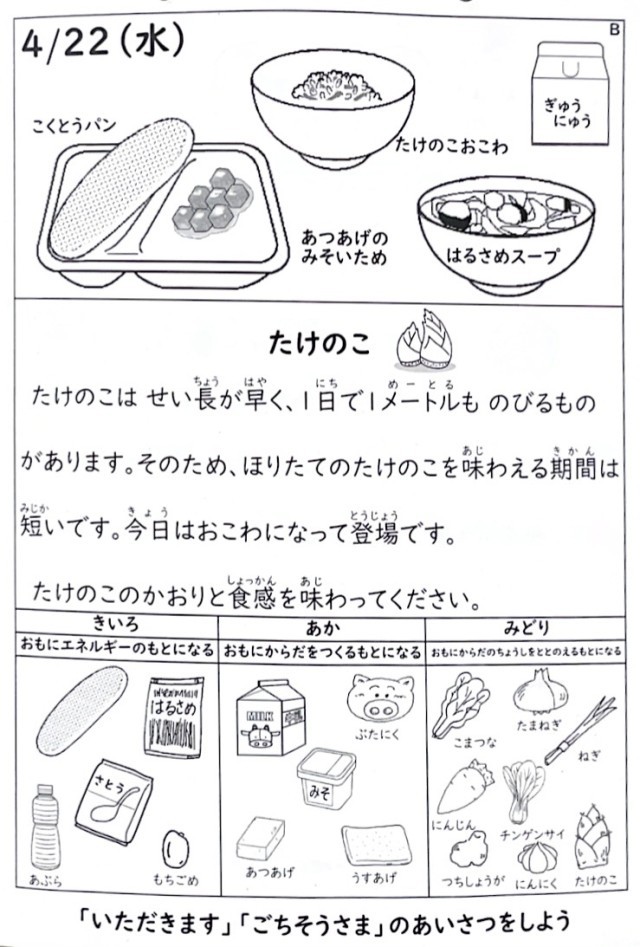 4/22(水)
B
こくとうパン
たけのこおこわ
ぎゅう
にゅう
あつあげの
みそいため
はるさめスープ
たけのこ
たけのこは せい長が早く、1日で1メートルも のびるもの
があります。そのため、ほりたてのたけのこを味わえる期間は
短いです。今日はおこわになって登場です。
たけのこのかおりと食感を味わってください。
きいろ
おもにエネルギーのもとになる
はるさめ
さとう
あぶら
もちごめ
あか
おもにからだをつくるもとになる
MILK
ぶたにく
みそ
あつあげ
うすあげ
みどり
おもにからだのちょうしをととのえるもとになる
こまつな
たまねぎ
ねぎ
にんじん
チンゲンサイ
つちしょうが
にんにく
たけのこ
「いただきます」「ごちそうさま」のあいさつをしよう